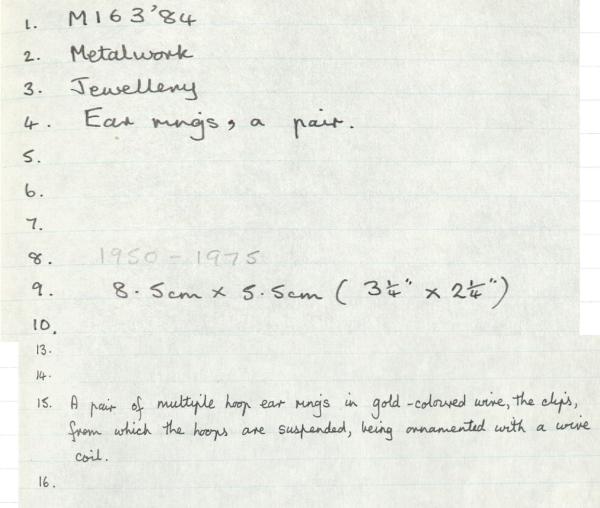 1. M163'84
2. Metalwork
3. Jewellery
4. Ear rings, a pair.
5.
6.
7.
8. 1950 - 1975
9. 8.5cm x 5.5cm ( 3¼" x 2¼")
10.
13.
14.
15. A pair of multiple hoop ear rings in gold-coloured wire, the clips,
from which the hoops are suspended, being ornamented with a wire
coil.
16.